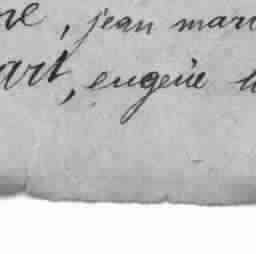 , jean mar
art, eugène